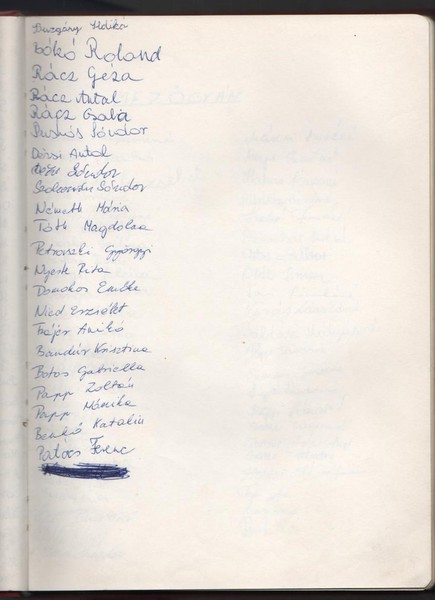 Bozgány Ildikó
Bókó Roland
Rácz Géza
Rácz Antal
Rácz Csaba
Puskás Sándor
Dózsi Antal
Sándor
Sándor
Németh Mária
Tóth Magdolna
Petrovszki Gyöngyi
Nyeste Rita
Domokos Emőke
Nied Erzsébet
Anikó
Bondár Krisztina
Botos Gabriella
Papp Zoltán
Papp Mónika
Benkő Katalin
Patócs Ferenc